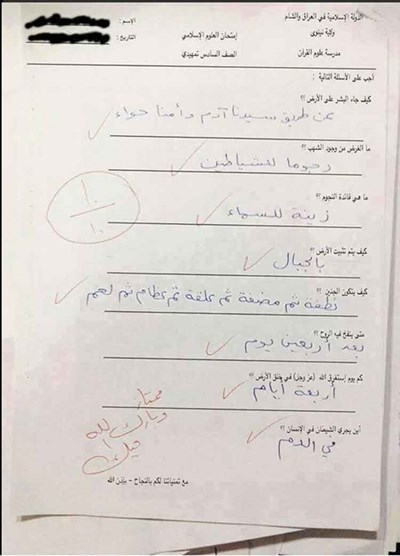 الدولة الإسلامية في العراق والشام
الإسم :
ولاية نينوى
إمتحان العلوم الإسلامي
التاريخ :
مدرسة علوم القرآن
الصف السادس تمهيدي
أجب على الأسئلة التالية :
كيف جاء البشر على الأرض ؟؟
عن طريق سيدنا آدم وأمنا حواء
ما الغرض من وجود الشهب ؟؟
رجوما للشياطين
ما هي فائدة النجوم ؟؟
زينة للسماء
١٠
١٠
كيف يتم تثبيت الأرض ؟؟
بالجبال
كيف يتكون الجنين ؟؟
نطفة ثم مضغة ثم علقة ثم عظام ثم لحم
متى ينفخ فيه الروح ؟؟
بعد أربعين يوم
كم يوم إستغرق الله (عز وجل) في خلق الأرض ؟؟
أربعة أيام
ممتاز
وبارك الله
فيك
أين يجري الشيطان في الإنسان ؟؟
في الدم
مع تمنياتنا لكم بالنجاح - بإذن الله